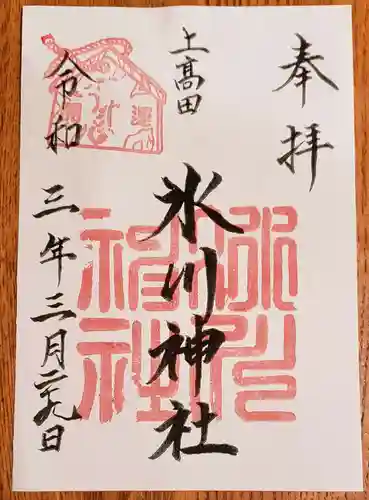 奉拝
上高田
氷川神社
令和三年三月二九日
氷川
神社